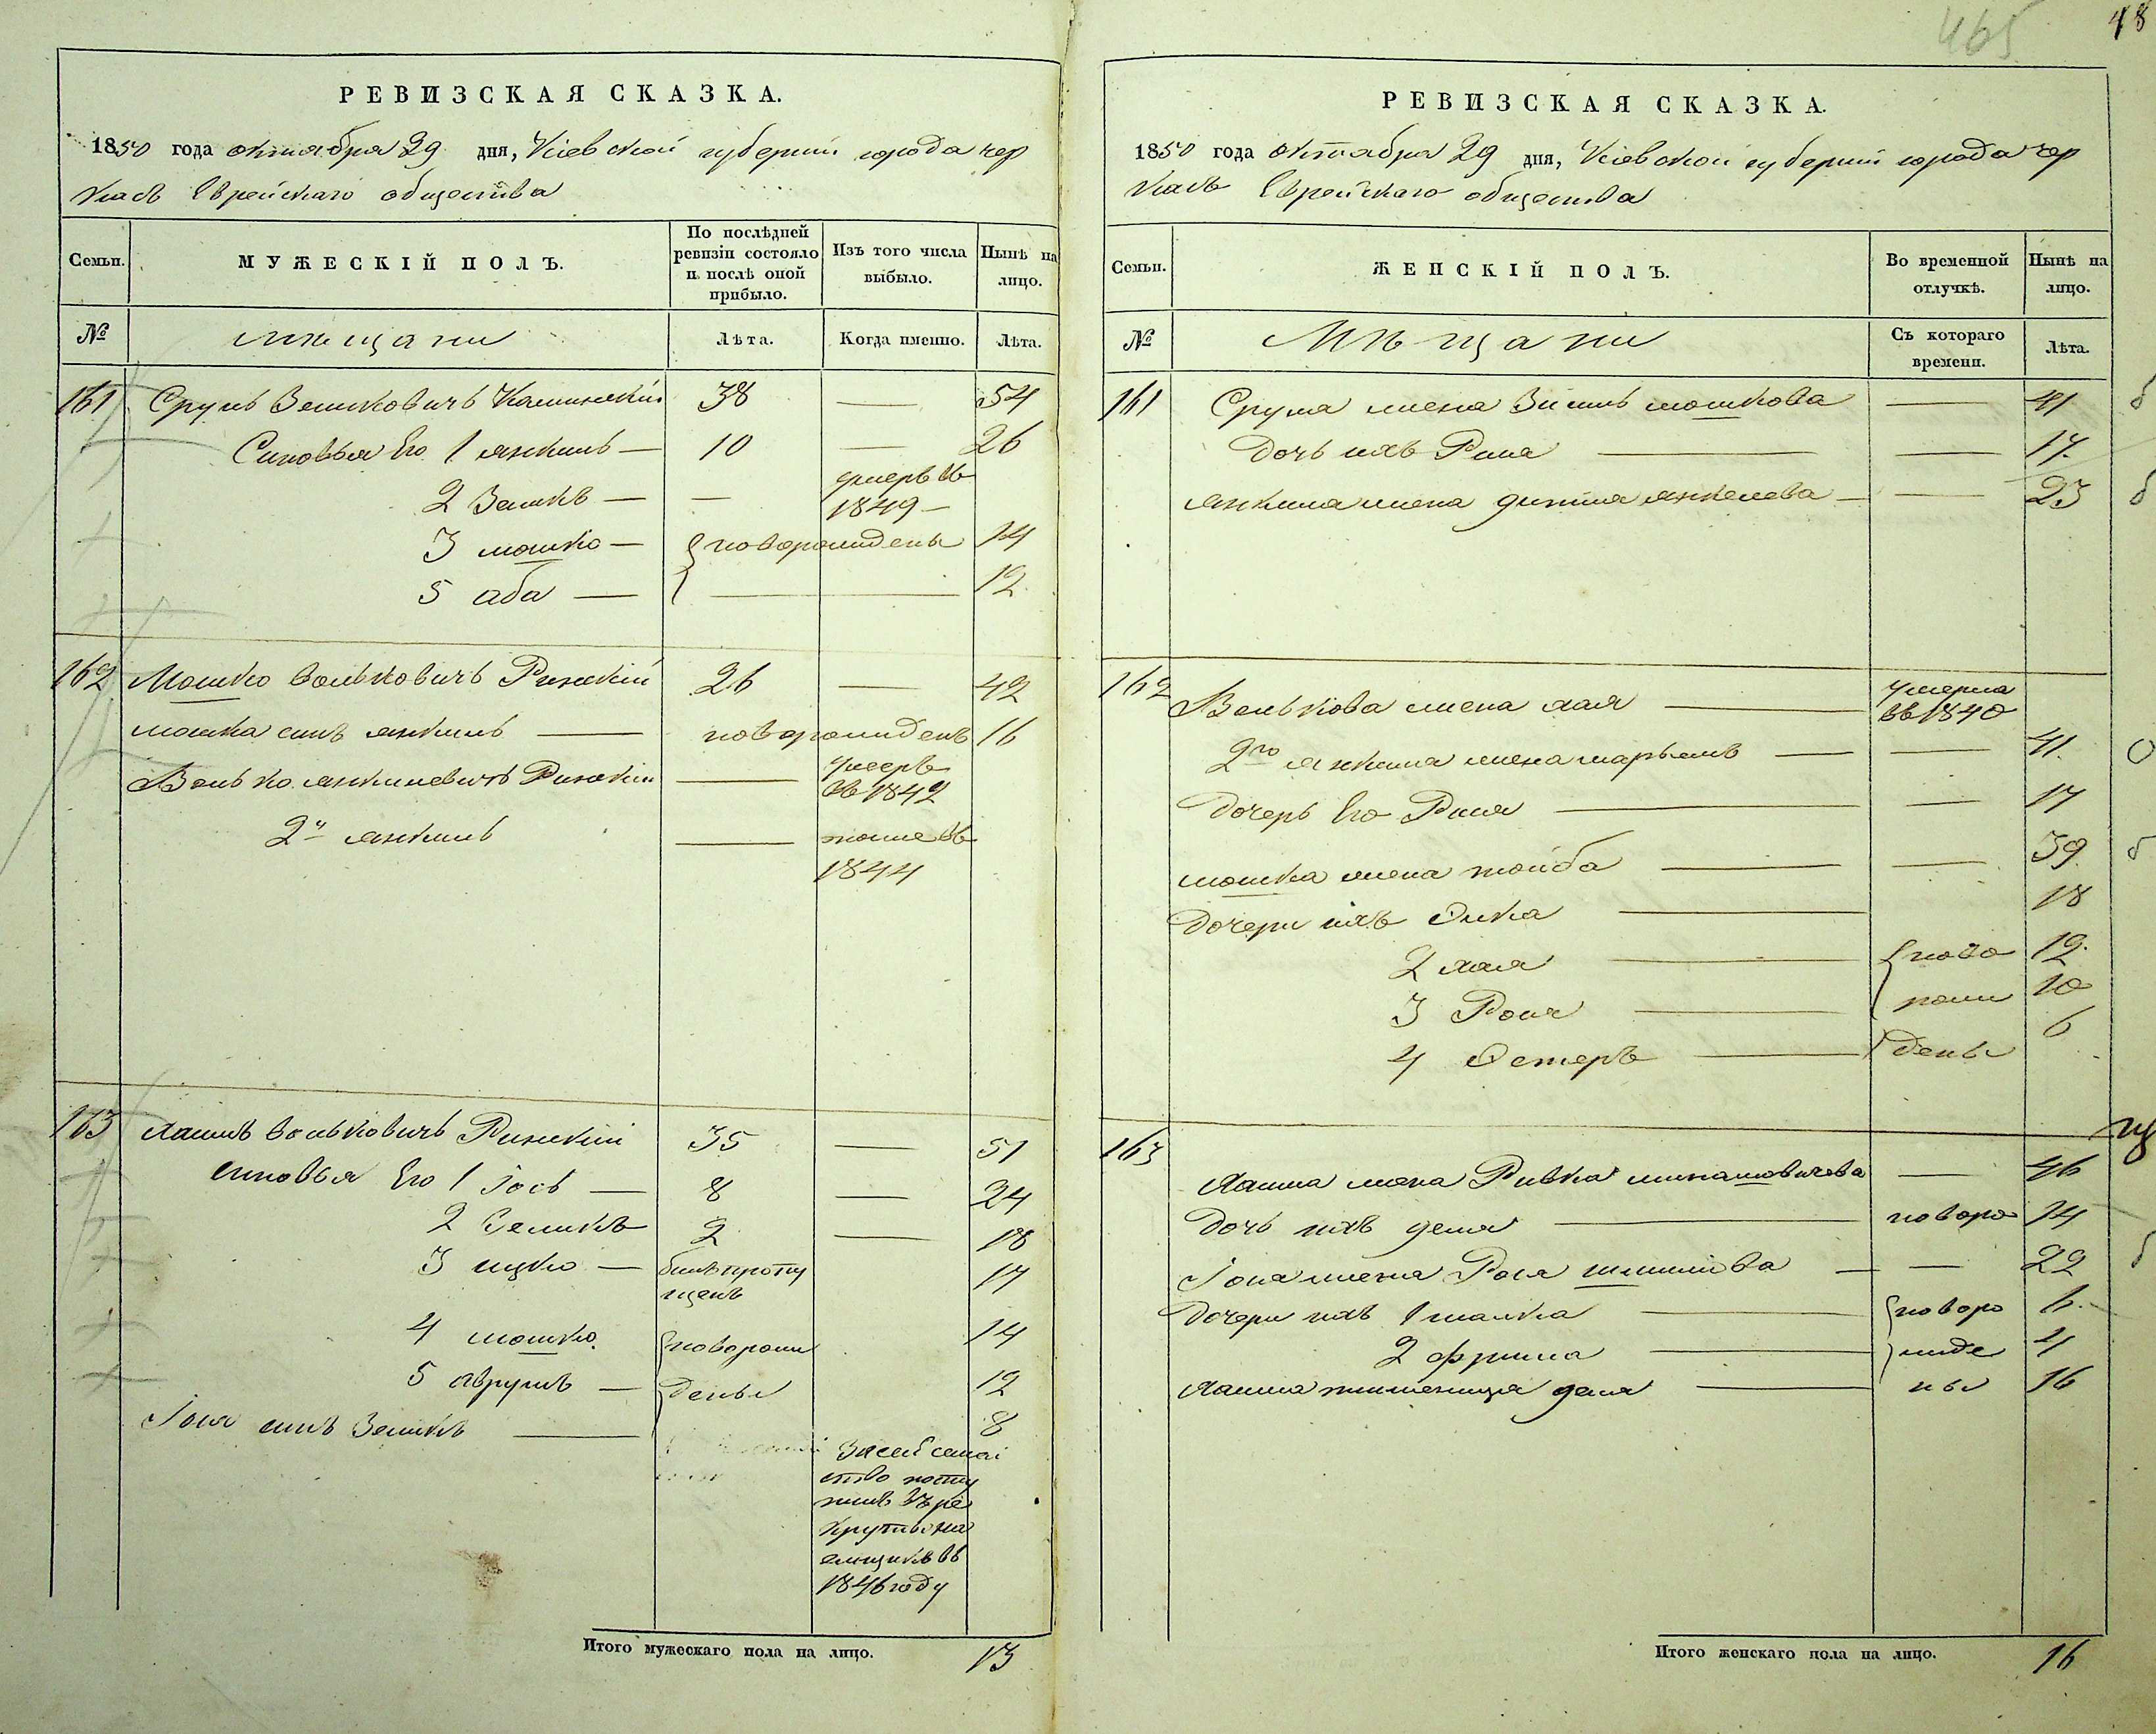 465
48
РЕВИЗСКАЯ СКАЗКА.
1850 года октября 29 дня, Кіевской губерніи города Чер
касъ Еврейскаго общества
Семьи.
МУЖЕСКІЙ ПОЛЪ.
По послѣдней ревизіи состояло и послѣ оной прибыло.
Изъ того числа выбыло.
Нынѣ на лицо.
№
мѣщани
Лѣта.
Когда именно.
Лѣта.
161 Сруль Зельковичъ Каминскій 38 — 54
Синовья Его 1 янкель — 10 — 26
2 Зелікъ — — умеръ въ 1849 —
3 мошко — новорожденъ 14
5 аба — — 12
162 Мошко Вольковичъ Рижскій 26 — 42
мошка синъ янкель — новорожденъ 16
Волько янкилевичъ Рижскій — умеръ въ 1842
2й янкиль — тоже въ 1844
163 Хаимъ Вольковичъ Рижскій 35 — 51
синовья Его 1 Іось — 8 — 24
2 Селикъ 2 — 18
3 ицко — билъ пропущенъ 17
4 мошко новорож 14
5 аврумъ — дены 12
Іося синъ Зеликъ — 8
ство посту
въ ре
круты на
емщикъ въ
1846 году
Итого мужескаго пола на лицо. 13
РЕВИЗСКАЯ СКАЗКА.
1850 года октября 29 дня, Кіевской губерніи города Чер
касъ Еврейскаго общества
Семьи.
ЖЕНСКІЙ ПОЛЪ.
Во временной отлучкѣ.
Нынѣ на лицо.
№
Мѣщани
Съ котораго времени.
Лѣта.
161 Срула жена мошкова — 41
Дочь ихъ — — 17
Янкеля жена янкелева — — 23
162 Волькова жена хая — умерла въ 1840
2го янкеля жена марьемъ — — 41
Дочерь Его Рися — — 17
мошка жена тойба — — 39
Дочери ихъ — 18
2 хая — ново 12
3 Рося — рож 10
4 Естеръ — дены 6
163 Хаима жена Ривка — 46
Дочь ихъ — новоро 14
Іося жена Рося — — 22
Дочери ихъ 1 малка — новоро 6
2 фрима — жде 4
Хаима племеница — ны 16
Итого женскаго пола на лицо. 16